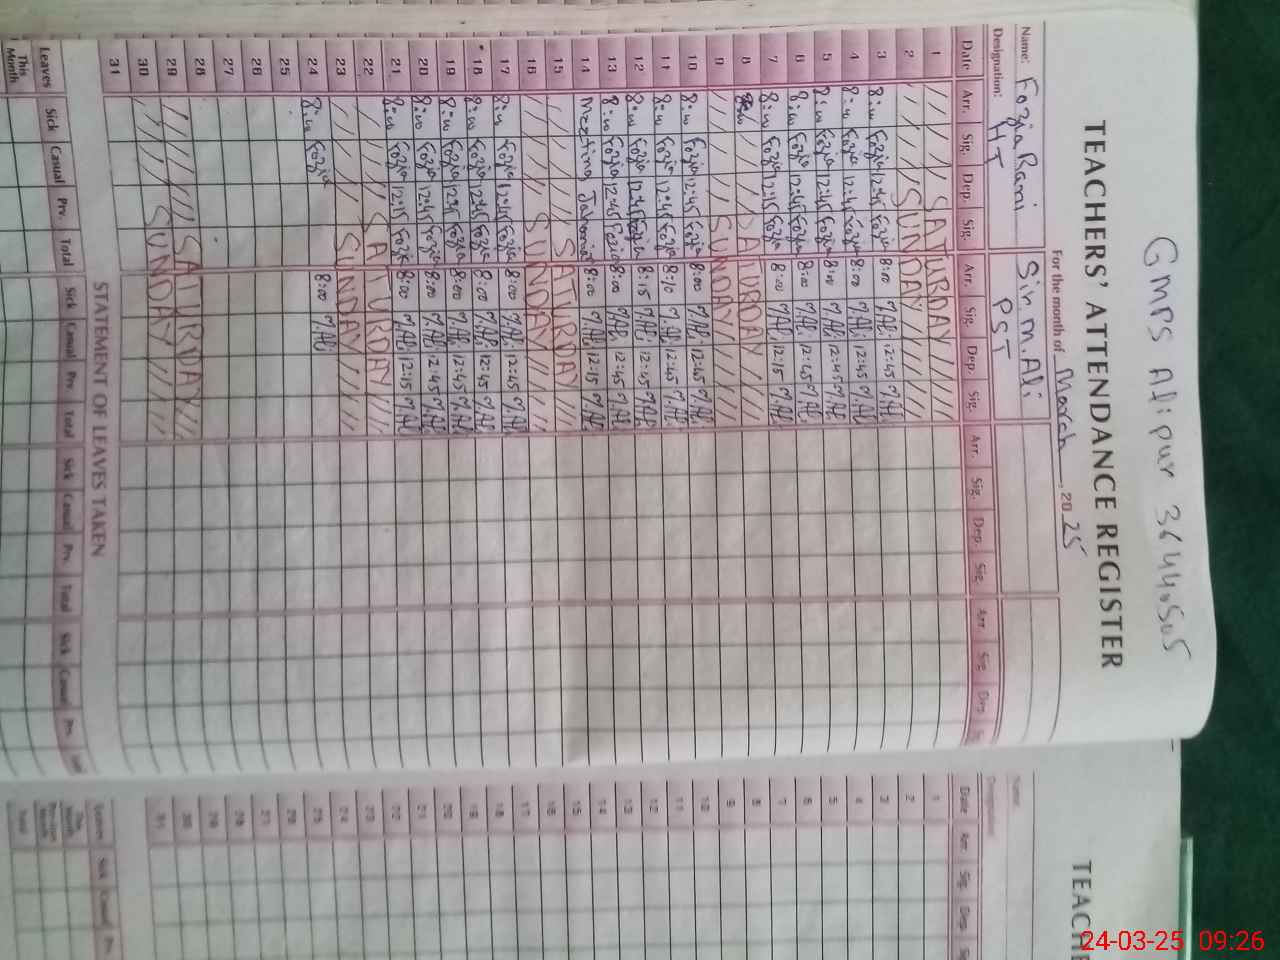 GMPS Alipur 36440505
TEACHERS' ATTENDANCE REGISTER
For the month of March, 2025
Name: Fozia Rani Sir M. Ali
Designation: HT PST
Date Arr. Sig. Dep. Sig. Arr. Sig. Dep. Sig. Arr. Sig. Dep. Sig. Arr. Sig. Dep.
1 SATURDAY
2 SUNDAY
3 8:00 Fozia 12:45 Fozia 8:00 M.Ali 12:45 M.Ali
4 8:00 Fozia 12:45 Fozia 8:00 M.Ali 12:45 M.Ali
5 8:00 Fozia 12:45 Fozia 8:00 M.Ali 12:45 M.Ali
6 8:00 Fozia 12:45 Fozia 8:00 M.Ali 12:45 M.Ali
7 8:00 Fozia 12:15 Fozia 8:00 M.Ali 12:15 M.Ali
8 SATURDAY
9 SUNDAY
10 8:00 Fozia 12:45 Fozia 8:00 M.Ali 12:45 M.Ali
11 8:00 Fozia 12:45 Fozia 8:10 M.Ali 12:45 M.Ali
12 8:00 Fozia 12:45 Fozia 8:15 M.Ali 12:45 M.Ali
13 8:00 Fozia 12:45 Fozia 8:00 M.Ali 12:45 M.Ali
14 Meeting 8:00 M.Ali 12:15 M.Ali
15 SATURDAY
16 SUNDAY
17 8:00 Fozia 12:45 Fozia 8:00 M.Ali 12:45 M.Ali
18 8:00 Fozia 12:45 Fozia 8:00 M.Ali 12:45 M.Ali
19 8:00 Fozia 12:45 Fozia 8:00 M.Ali 12:45 M.Ali
20 8:00 Fozia 12:45 Fozia 8:00 M.Ali 12:45 M.Ali
21 8:00 Fozia 12:15 Fozia 8:00 M.Ali 12:15 M.Ali
22 SATURDAY
23 SUNDAY
24 8:00 Fozia 8:00 M.Ali
25
26
27
28
29 SATURDAY
30 SUNDAY
31
STATEMENT OF LEAVES TAKEN
Leaves Sick Casual Prv. Total Sick Casual Prv. Total Sick Casual Prv. Total Sick Casual Prv.
This Month
TEACHE
Name:
Designation:
Date Arr. Sig. Dep.
1
2
3
4
5
6
7
8
9
10
11
12
13
14
15
16
17
18
19
20
21
22
23
24
25
26
27
28
29
30
31
Leaves Sick Casual
24-03-25 09:26